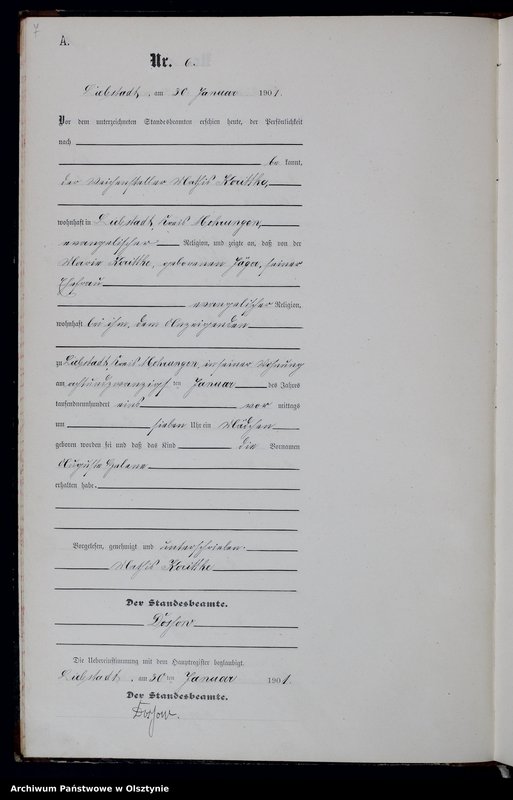 7
A.
Nr. 6.
Liebstadt, am 30 Januar 1901.
Vor dem unterzeichneten Standesbeamten erschien heute, der Persönlichkeit
nach
be kannt,
der Weichensteller Mathis
wohnhaft in Liebstadt, Kreis Mohrungen,
evangelischer Religion, und zeigte an, daß von der
Marie geborenen Jäger, seiner
Ehefrau
evangelischer Religion,
wohnhaft bei ihm, dem Anzeigenden
zu Liebstadt, Kreis Mohrungen, in seiner Wohnung
am achtundzwanzigsten Januar des Jahres
tausendneunhundert eins vor mittags
um sieben Uhr ein Mädchen
geboren worden sei und daß das Kind die Vornamen
Auguste Helene
erhalten habe.
Vorgelesen, genehmigt und unterschrieben.
Mathis
Der Standesbeamte.
Die Uebereinstimmung mit dem Hauptregister beglaubigt.
Liebstadt, am 30ten Januar 1901.
Der Standesbeamte.
Archiwum Państwowe w Olsztynie